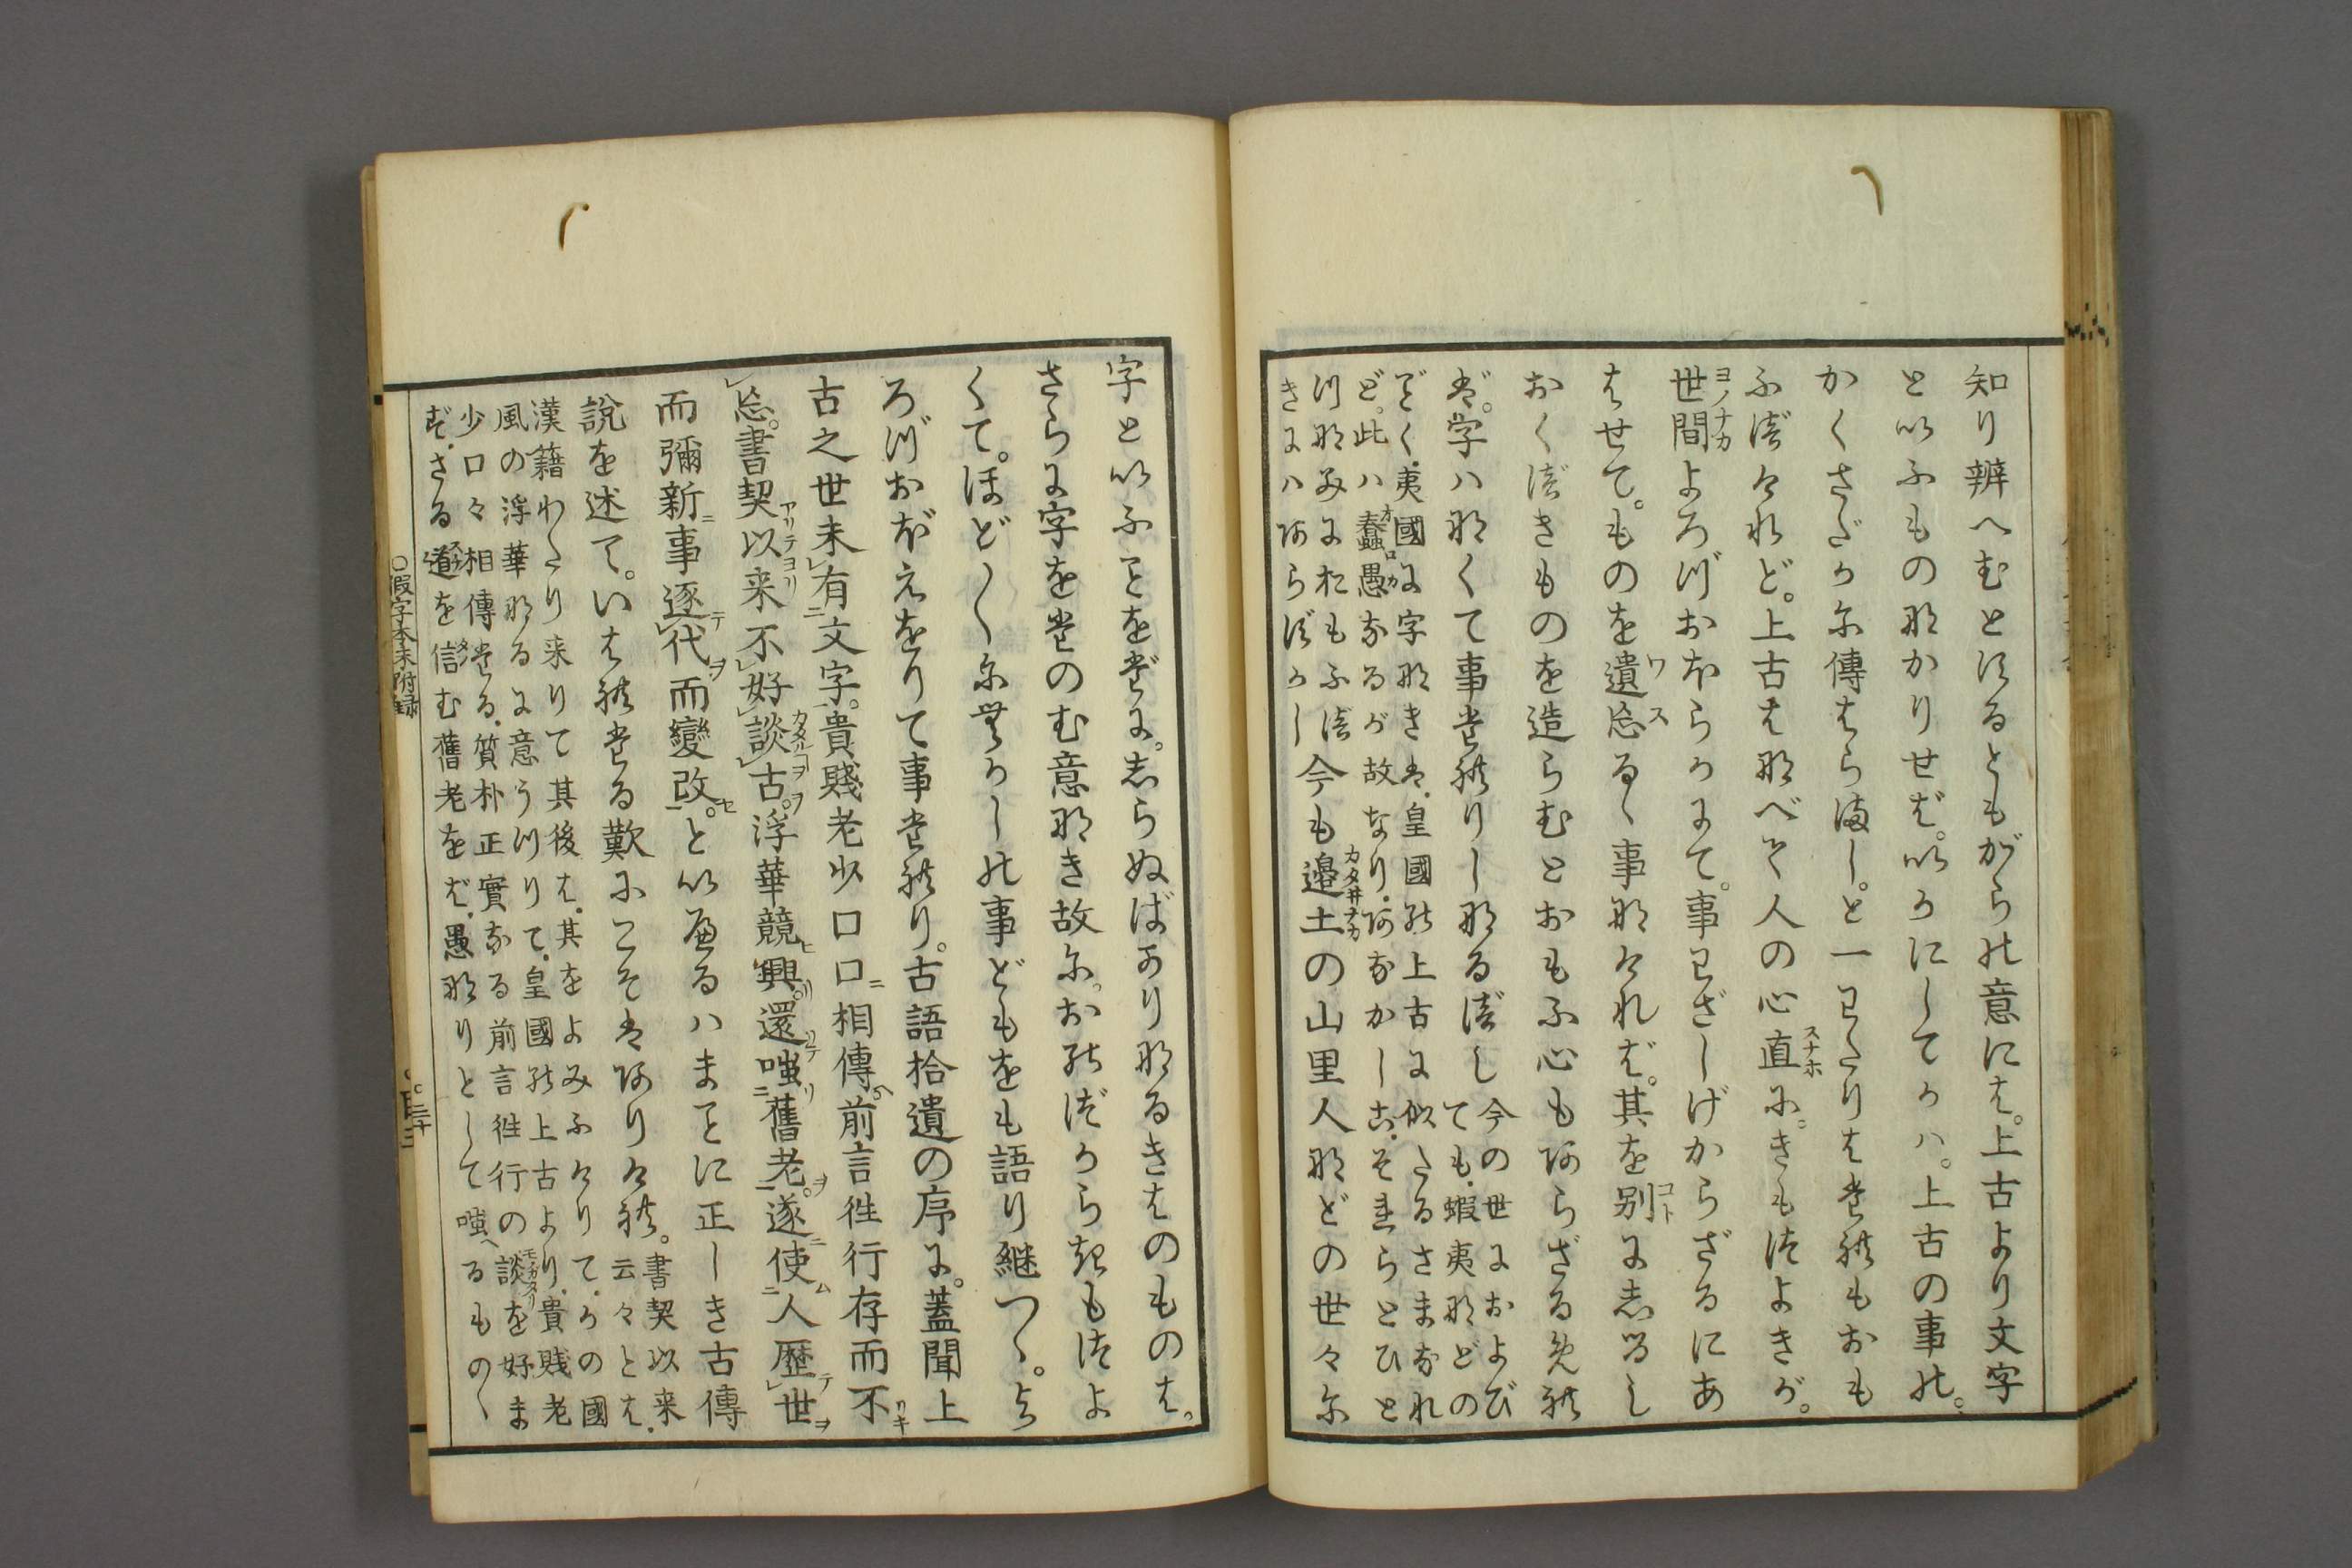 知り辨へむとするともがらの意には。上古より文字
といふものなかりせば。いかにしてかハ。上古の事の。
かくさだかに傳はらまし。と一わたりはたれもおも
ふべけれど。上古はなべて人の心直に。きもつよきが。
世間よろづおほらかにて。事わざしげからざるにあ
はせて。ものを遺忘るゝ事なければ。其を別にしるし
おくべきものを造らむとおもふ心もあらざるめれ
ば。字ハなくて事たれりしなるべし
今の世におよび
ても。蝦夷などの
ごとく。夷國に字なきは。皇國の上古に似たるさまなれ
ど。此ハ蠢愚なるが故なり。あなかしこ。それらとひと
つなみにおもふべ
きにハあらずかし
今も邉土の山里人などの世々に
字といふことをだに。しらぬばかりなるきはのものは。
さらに字をたのむ意なき故に。おのづからきもつよ
くて。ほど〱にむかしの事どもをも語り継つゝ。よ
ろづおぼえをりて事たれり。古語拾遺の序に。蓋聞上
古之世未有文字。貴賤老少口口相傳前言徃行存而不
忘。書契以来不好談古。浮華競興還嗤舊老。遂使人歴世
而彌新事逐代而變改。といへるハまことに正しき古傳
說を述て。いはれたる歎にこそはありけれ。
書契以来。
云々とは。
漢籍わたり来りて其後は。其をよみふけりて。かの國
風の浮華なるに意うつりて。皇國の上古より。貴賤老
少口々相傳たる。質朴正實なる前言徃行の談を好ま
ず。さる道を信む舊老をば。愚なりとして嗤へるもの〱
○假字本末附録